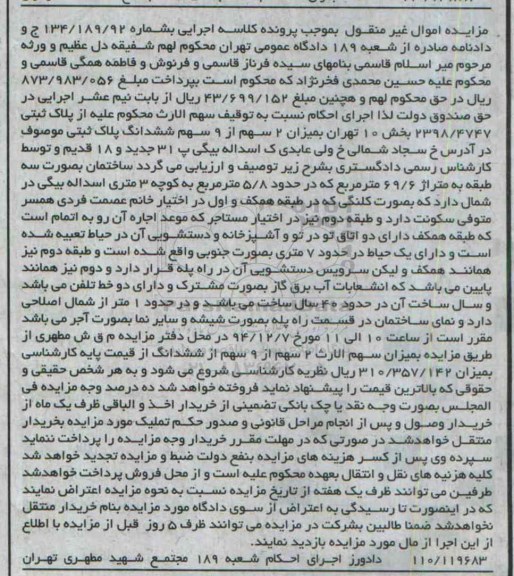 مزایده اموال غیر منقول بموجب پرونده کلاسه اجرایی بشماره ۱۳۴/۱۸۹/۹۲ ج و
دادنامه صادره از شعبه ۱۸۹ دادگاه عمومی تهران محکوم لهم شفیقه دل عظیم و ورثه
مرحوم میر اسلام قاسمی بنامهای سیده فرناز قاسمی و فرنوش و فاطمه همگی قاسمی و
محکوم علیه حسین محمدی فخرنژاد که محکوم است بپرداخت مبلغ ۸۷۳/۹۸۳/۰۵۶
ریال در حق محکوم لهم و همچنین مبلغ ۴۳/۶۹۹/۱۵۲ ریال از بابت نیم عشر اجرایی در
حق صندوق دولت لذا اجرای احکام نسبت به توقیف سهم الارث محکوم علیه از پلاک ثبتی
۲۳۹۸/۴۷۴۷ بخش ۱۰ تهران بمیزان ۲ سهم از ۹ سهم ششدانگ پلاک ثبتی موصوف
در آدرس خ سجاد شمالی خ ولی عابدی ک اسداله بیگی پ ۳۱ جدید و ۱۸ قدیم و توسط
کارشناس رسمی دادگستری بشرح زیر توصیف و ارزیابی می گردد ساختمان بصورت سه
طبقه به متراژ ۶۹/۶ مترمربع که در حدود ۵/۸ مترمربع به کوچه ۳ متری اسداله بیگی در
شمال دارد که بصورت کلنگی که در طبقه همکف و اول در اختیار خانم عصمت فردی همسر
متوفی سکونت دارد و طبقه دوم نیز در اختیار مستاجر که موعد اجاره آن رو به اتمام است
که طبقه همکف دارای دو اتاق تو در تو و آشپزخانه و دستشویی آن در حیاط تعبیه شده
است و دارای یک حیاط در حدود ۷ متری بصورت جنوبی واقع شده است و طبقه دوم نیز
همانند همکف و لیکن سرویس دستشویی آن در راه پله قرار دارد و دوم نیز همانند
پایین می باشد که انشعابات آب برق گاز بصورت مشترک و دارای دو خط تلفن می باشد
و سال ساخت آن در حدود ۴۰ سال ساخت می باشد و در حدود ۱ متر از شمال اصلاحی
دارد و نمای ساختمان در قسمت راه پله بصورت شیشه و سایر نما بصورت آجر می باشد
مقرر است از ساعت ۱۰ الی ۱۱ مورخ ۹۴/۱۲/۷ در محل دفتر مزایده م ق ش مطهری از
طریق مزایده بمیزان سهم الارث ۲ سهم از ۹ سهم از ششدانگ از قیمت پایه کارشناسی
بمیزان ۳۱۰/۳۵۷/۱۴۲ ریال نظریه کارشناسی شروع می شود و به هر شخص حقیقی و
حقوقی که بالاترین قیمت را پیشنهاد نماید فروخته خواهد شد ده درصد وجه مزایده فی
المجلس بصورت وجه نقد یا چک بانکی تضمینی از خریدار اخذ و الباقی ظرف یک ماه از
خریدار وصول و پس از انجام مراحل قانونی و صدور حکم تملیک مورد مزایده بخریدار
منتقل خواهدشد در صورتی که در مهلت مقرر خریدار وجه مزایده را پرداخت ننماید
سپرده وی پس از کسر هزینه های مزایده بنفع دولت ضبط و مزایده تجدید خواهد شد
کلیه هزنیه های نقل و انتقال بعهده محکوم علیه است و از محل فروش پرداخت خواهدشد
طرفین می توانند ظرف یک هفته از تاریخ مزایده نسبت به نحوه مزایده اعتراض نمایند
که در اینصورت تا رسیدگی به اعتراض از سوی دادگاه مورد مزایده بنام خریدار منتقل
نخواهدشد ضمنا طالبین بشرکت در مزایده می توانند ظرف ۵ روز قبل از مزایده با اطلاع
از این اجرا از مال مورد مزایده بازدید نمایند.
۱۱۰/۱۱۹۶۸۳ دادورز اجرای احکام شعبه ۱۸۹ مجتمع شهید مطهری تهران